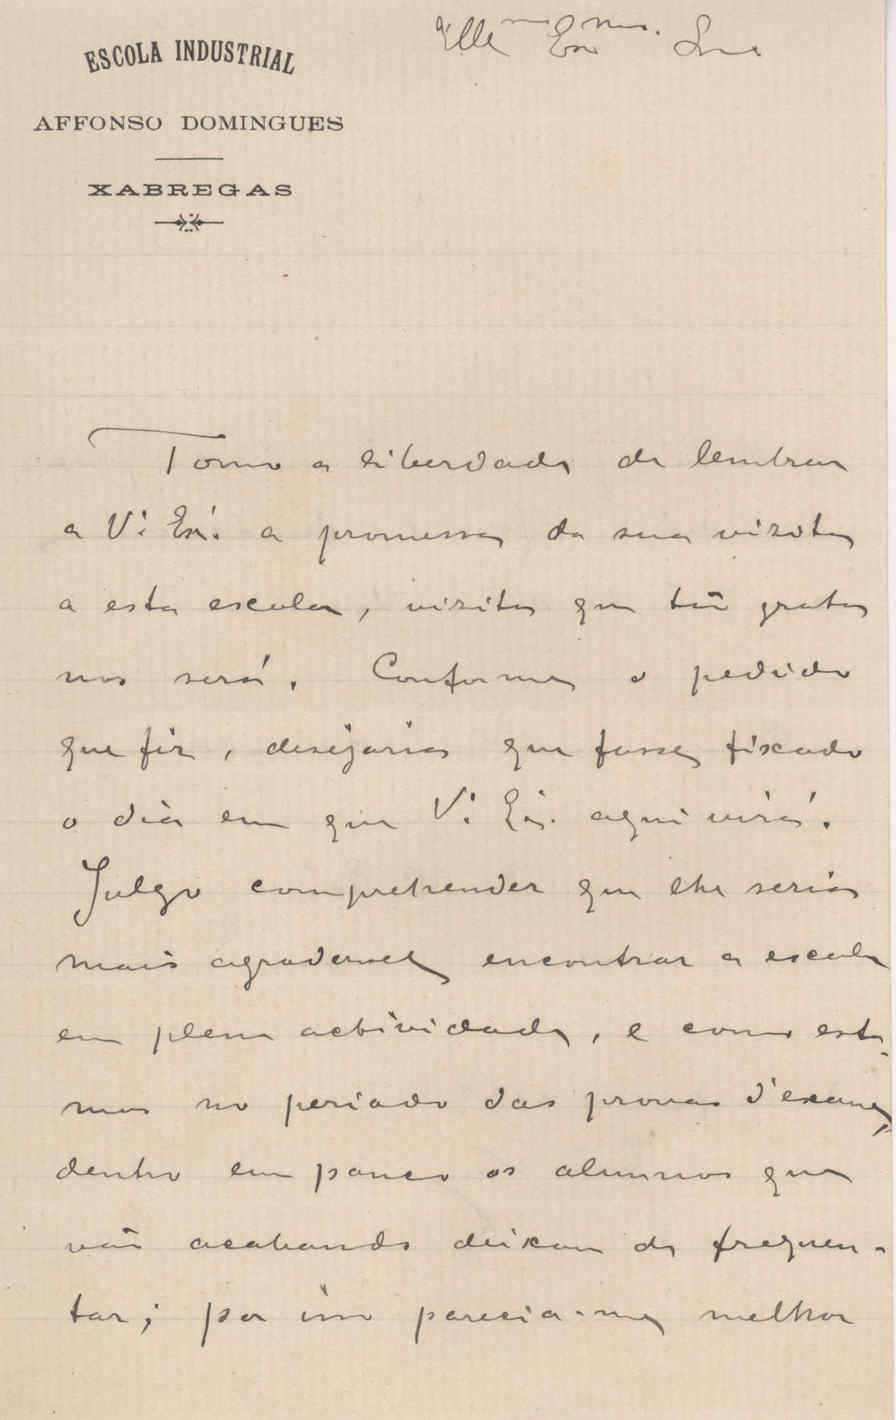 ESCOLA INDUSTRIAL
AFFONSO DOMINGUES
XABREGAS
Illmo Exmo. Snr
Tomo a liberdade de lembrar
a V. Exª. a promessa da sua visita
a esta escola, visita que tão grata
nos será. Conforme o pedido
que fiz, desejaria que fosse fixado
o dia em que V. Exª. aqui virá.
Julgo comprehender que lhe seria
mais agradavel encontrar a escola
em plena actividade, e como esta-
mos no periodo das provas d'exame,
dentro em pouco os alumnos que
vão acabando deixam de frequen-
tar; por isso parecia-me melhor